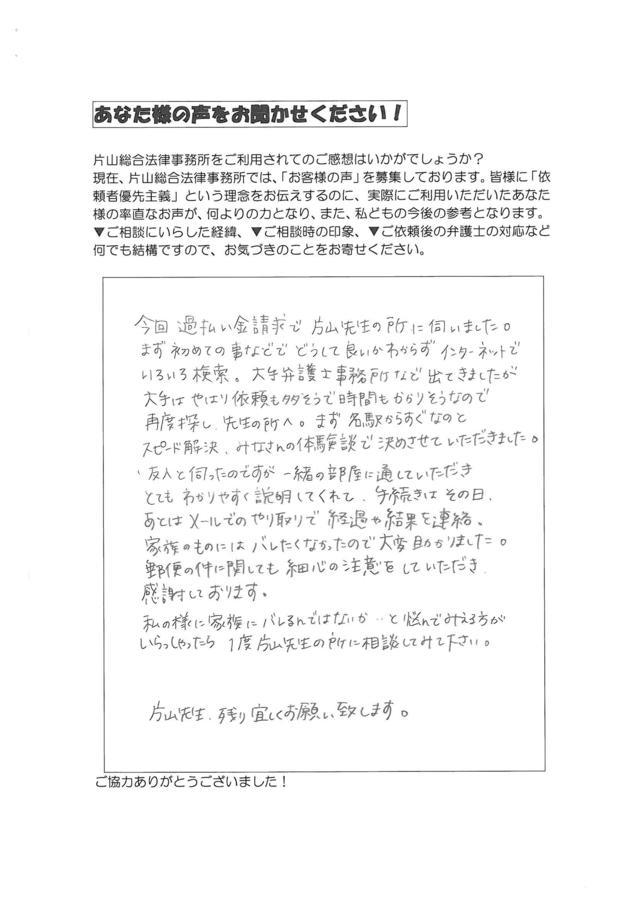 あなた様の声をお聞かせください！
片山総合法律事務所をご利用されてのご感想はいかがでしょうか？
現在、片山総合法律事務所では、「お客様の声」を募集しております。皆様に「依
頼者優先主義」という理念をお伝えするのに、実際にご利用いただいたあなた
様の率直なお声が、何よりの力となり、また、私どもの今後の参考となります。
▼ご相談にいらした経緯、▼ご相談時の印象、▼ご依頼後の弁護士の対応など
何でも結構ですので、お気づきのことをお寄せください。
今回 過払い金請求で 片山先生の所に伺いました。
まず 初めての事などで どうして良いかわからず インターネットで
いろいろ検索。大手弁護士事務所など出てきましたが
大手は やはり依頼も多そうで時間もかかりそうなので
再度探し、先生の所へ。まず 名駅からすぐなのと
スピード解決、みなさんの体験談で決めさせていただきました。
友人と伺ったのですが 一緒の部屋に通していただき
とても わかりやすく説明してくれて、手続きは その日、
あとは メールでのやり取りで 経過や結果を連絡。
家族のものには バレたくなかったので大変助かりました。
郵便の件に関しても 細心の注意をしていただき
感謝しております。
私の様に家族にバレるんではないか…と悩んでみえる方が
いらっしゃったら 1度片山先生の所に相談してみて下さい。
片山先生、残り宜しくお願い致します。
ご協力ありがとうございました！